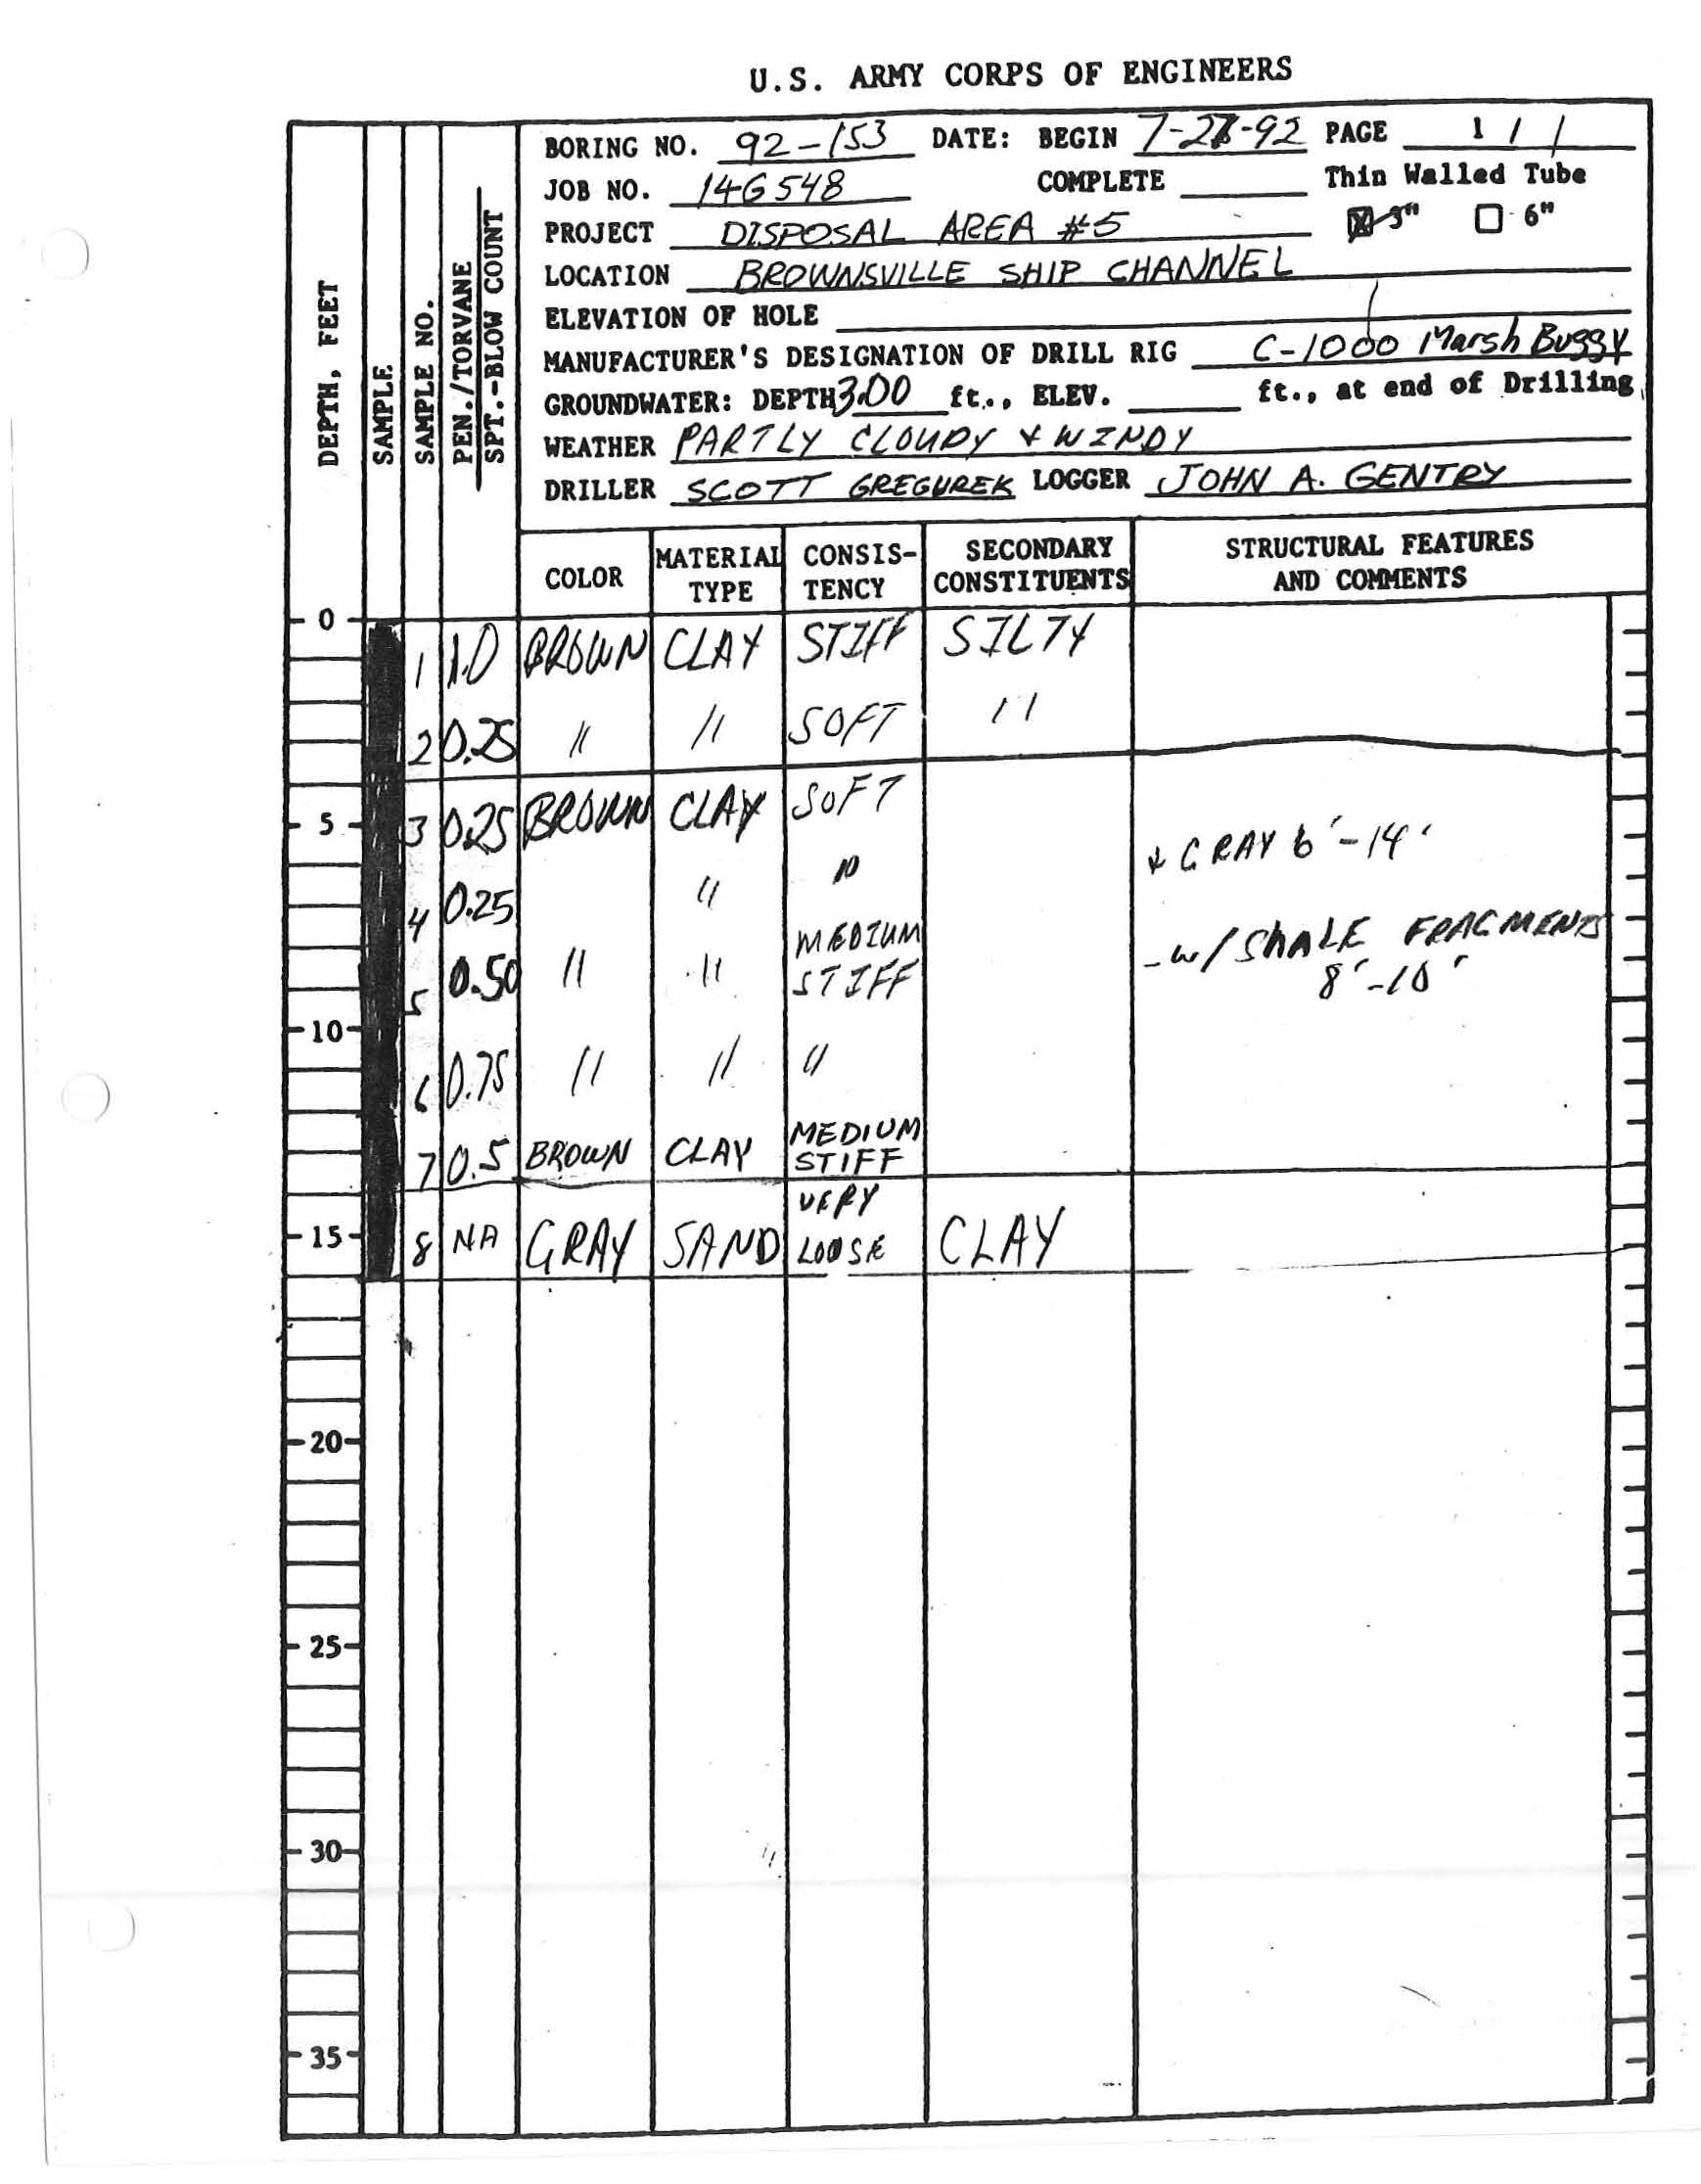 U.S. ARMY CORPS OF ENGINEERS
DEPTH, FEET
SAMPLE
SAMPLE NO.
PEN./TORVANE
SPT.-BLOW COUNT
BORING NO. 92-153 DATE: BEGIN PAGE 1 / 1
JOB NO. 14G548 COMPLETE Thin Walled Tube
PROJECT DISPOSAL AREA #5 3" 6"
LOCATION BROWNSVILLE SHIP CHANNEL
ELEVATION OF HOLE
MANUFACTURER'S DESIGNATION OF DRILL RIG C-1000 Marsh Buggy
GROUNDWATER: DEPTH 3.00 ft., ELEV. ft., at end of Drilling
WEATHER PARTLY CLOUDY & WINDY
DRILLER SCOTT GREGUREK LOGGER JOHN A. GENTRY
COLOR MATERIAL TYPE CONSIS-TENCY SECONDARY CONSTITUENTS STRUCTURAL FEATURES AND COMMENTS
0
1 1.0 BROWN CLAY STIFF SILTY
2 0.25 " " SOFT "
5 3 0.25 BROWN CLAY SOFT
& GRAY 6'-14'
4 0.25 " "
5 0.50 " " MEDIUM STIFF -w/ ShALE FRAGMENTS
8'-10'
10
6 0.75 " " "
7 0.5 BROWN CLAY MEDIUM STIFF
15 8 NA GRAY SAND VERY LOOSE CLAY
20
25
30
35